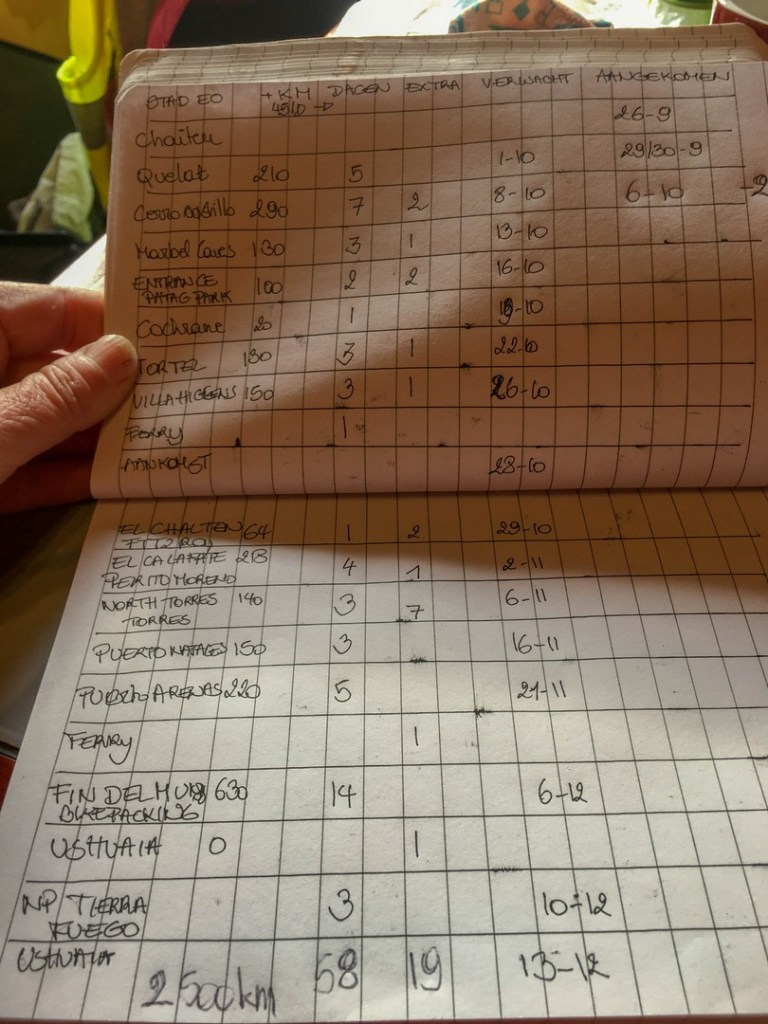 STAD EO + KM DAGEN EXTRA VERWACHT AANGEKOMEN
45/D →
Chaiten 26-9
Quelat 210 5 1-10 29/30-9
Cerro Castillo 290 7 2 8-10 6-10 -2
Marbel Caves 130 3 1 13-10
ENTRANCE 100 2 2 16-10
PATAG PARK
Cochrane 20 1 19-10
TORTEL 130 3 1 22-10
VILLA HIGGENS 150 3 1 26-10
FERRY 1
AANKOMST 28-10
EL CHALTEN 64 1 2 29-10
FITZ ROJ
EL CALAFATE 213 4 1 2-11
PERITO MORENO
NORTH TORRES 140 3 7 6-11
TORRES
PUERTO NATALES 150 3 16-11
PUERTO ARENAS 220 5 21-11
FERRY 1
FIN DEL MUNDO 630 14 6-12
BIKEPACKING
USHUAIA 0 1
NP TIERRA 3 10-12
FUEGO
USHUAIA 58 19 13-12
2500km